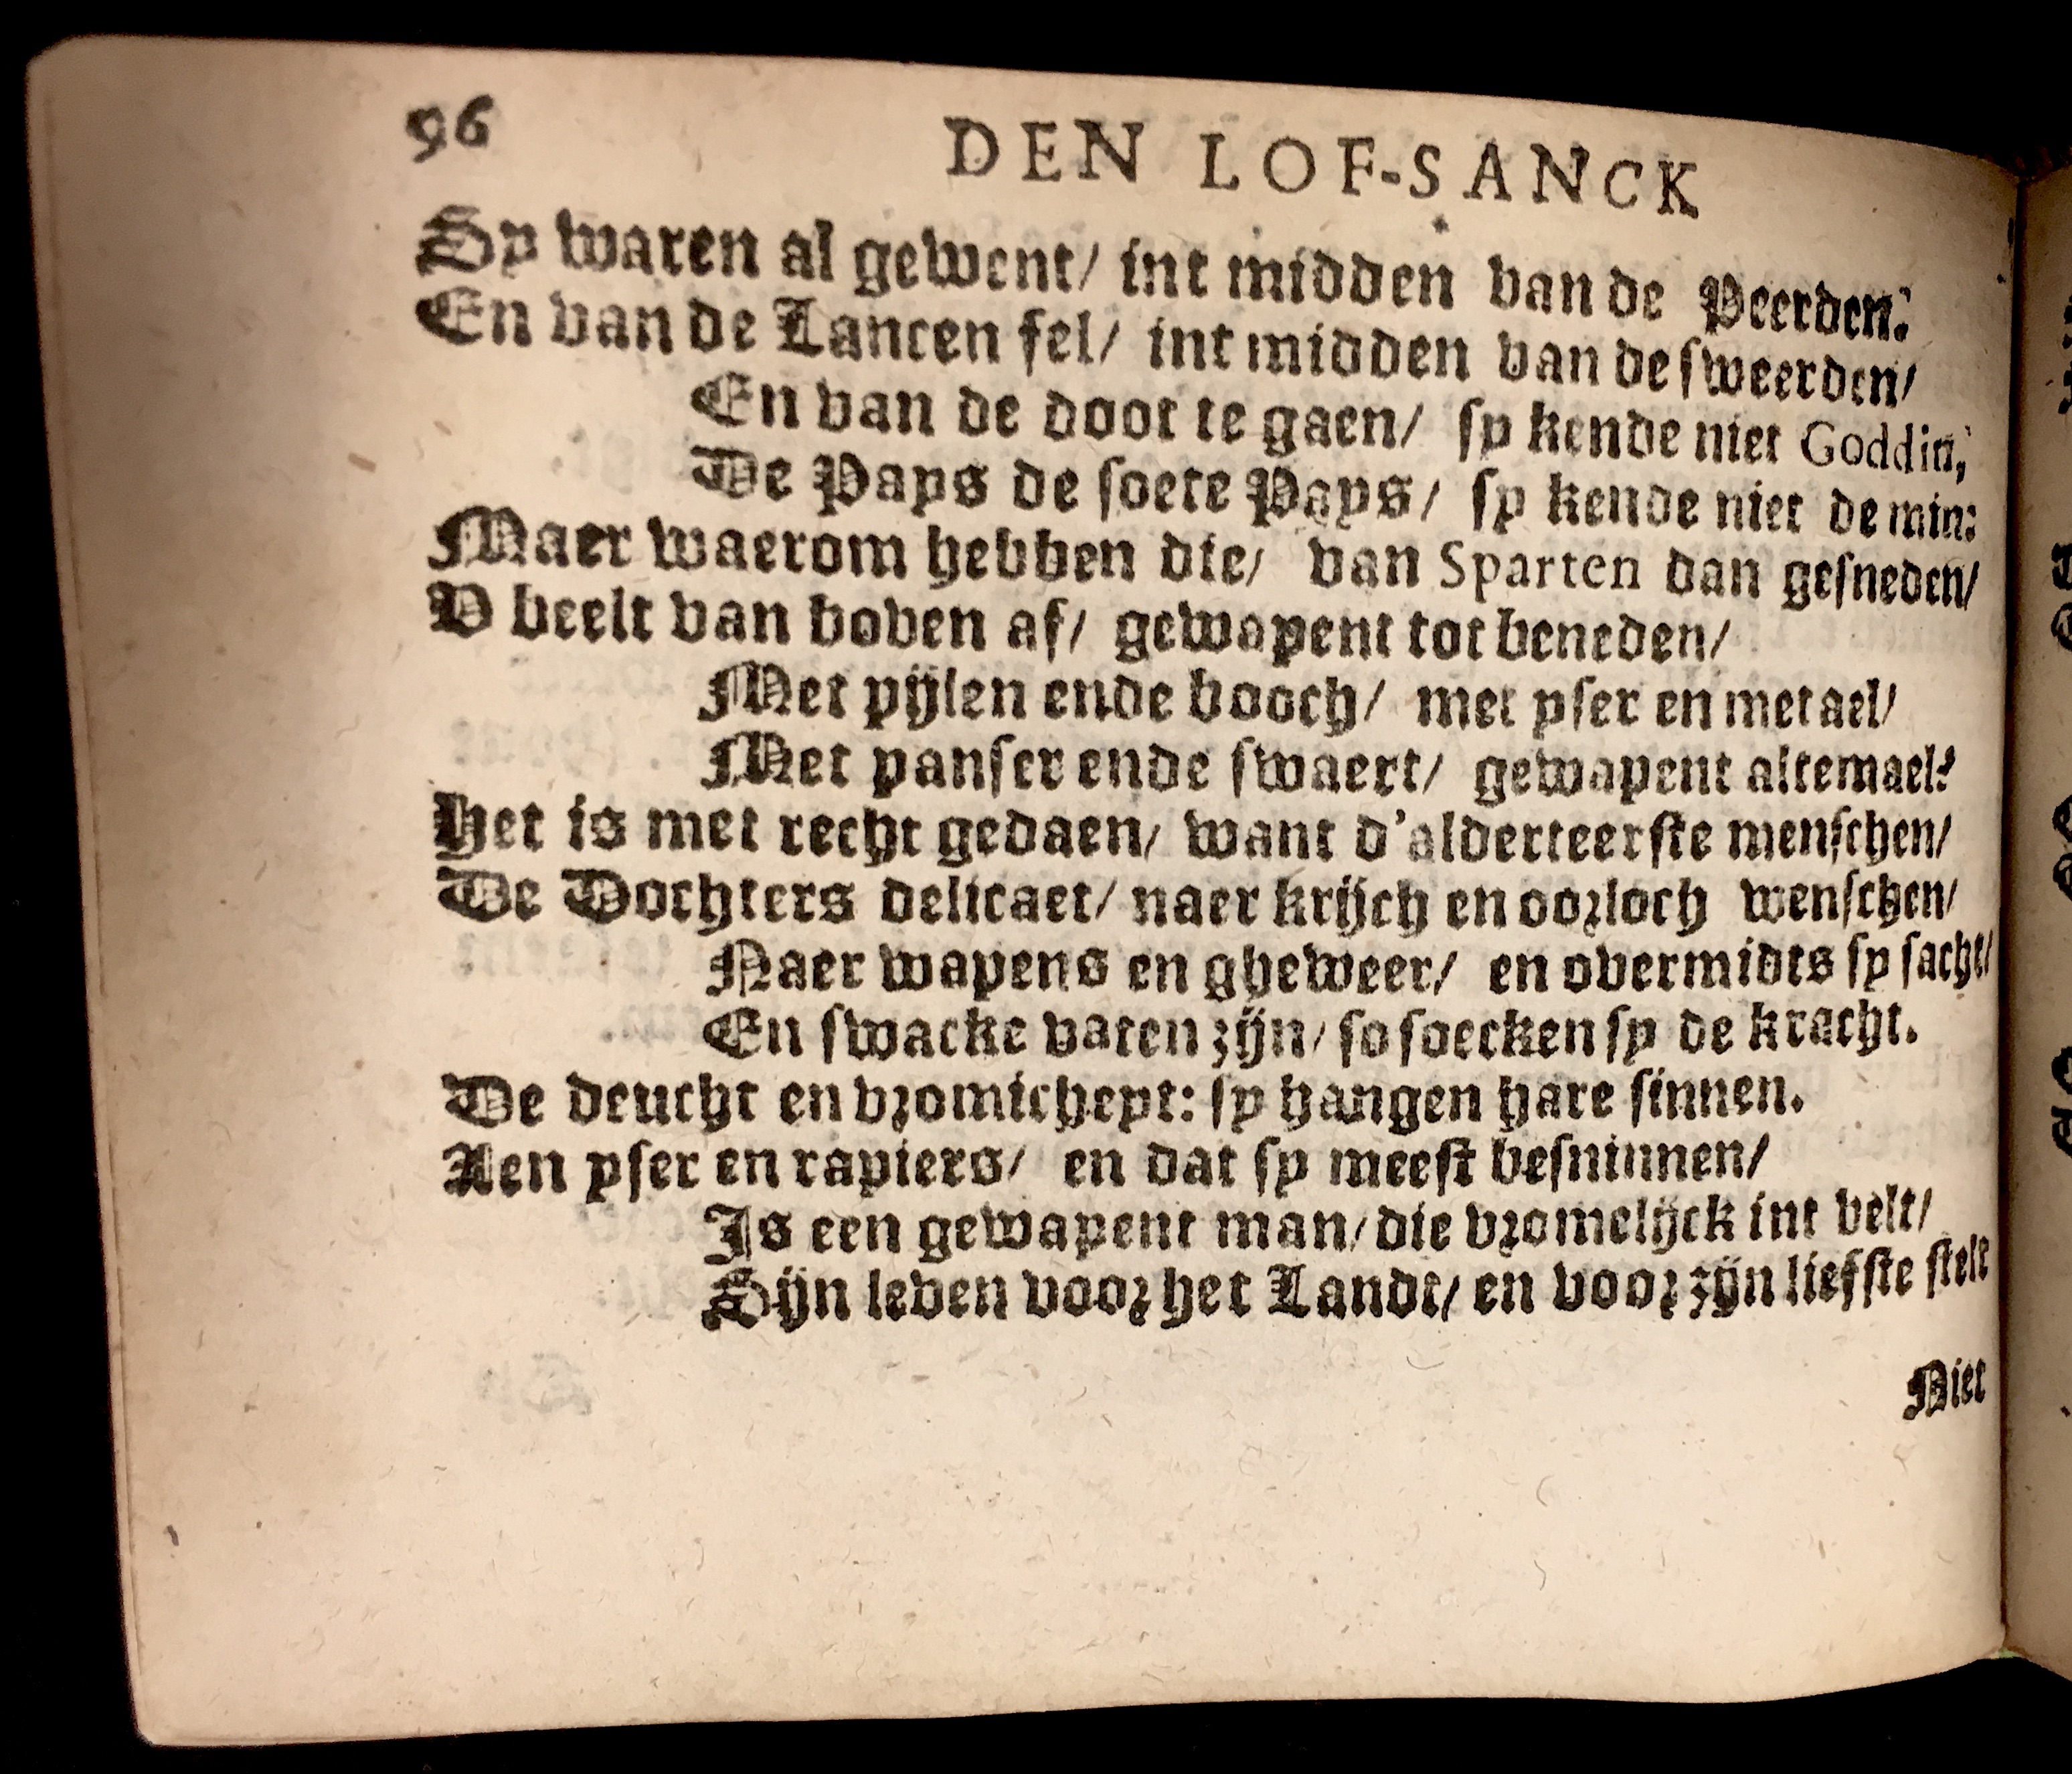 96
DEN LOF-SANCK
Sy waren al gewent/ int midden van de Peerden:
En van de Lancen fel/ int midden van de sweerden/
En van de doot te gaen/ sy kende niet Goddin,
De Pays de soete Pays/ sy kende niet de min:
Maer waerom hebben die/ van Sparten dan gesneden/
V beelt van boven af/ gewapent tot beneden/
Met pijlen ende booch/ met yser en metael/
Met panser ende swaert/ gewapent altemael?
Het is met recht gedaen/ want d'alderteerste menschen/
De Dochters delicaet/ naer krijch en oorloch wenschen/
Naer wapens en gheweer/ en overmidts sy sacht/
En swacke vaten zijn/ so soecken sy de kracht.
De deucht en vromicheyt: sy hangen hare sinnen.
Aen yser en rapiers/ en dat sy meest besninnen/
Is een gewapent man/ die vromelijck int velt/
Sijn leven voor het Landt/ en voor zijn liefste stelt
Niet